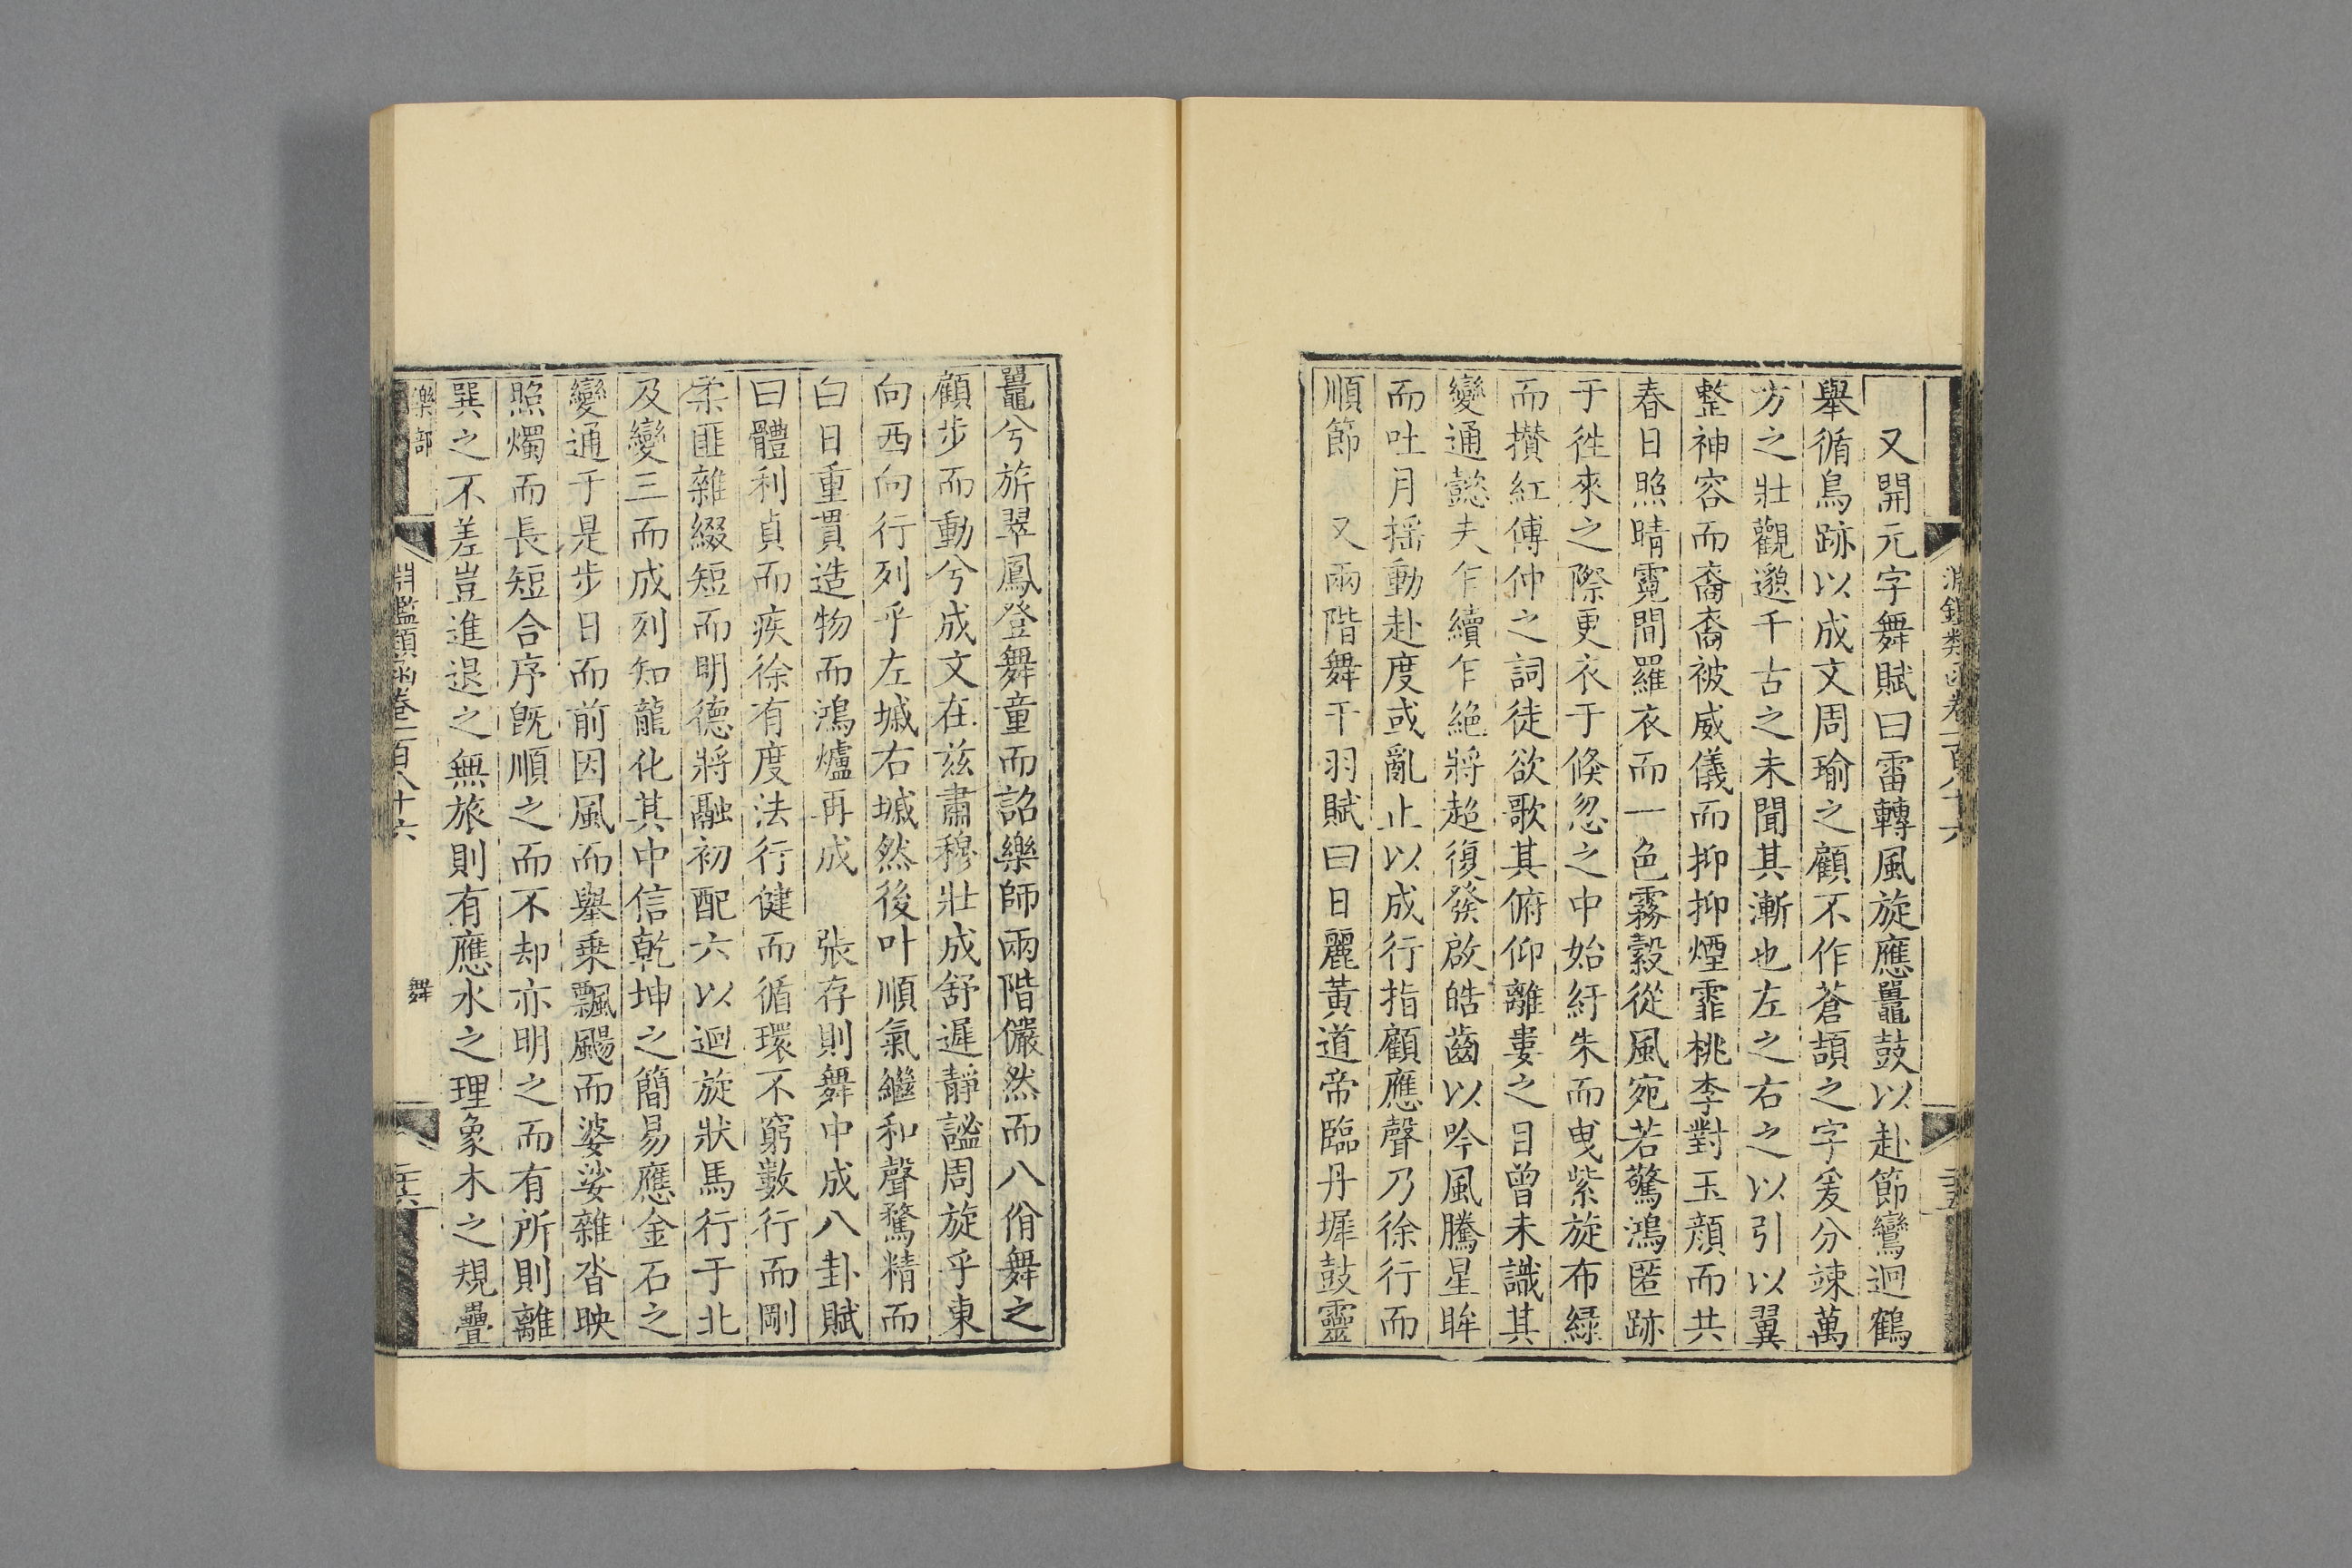 淵鑑類函卷一百八十六
二十五
又開元字舞賦曰雷轉風旋應鼉鼓以赴節鸞迴鶴
舉循鳥跡以成文周瑜之顧不作蒼頡之字爰分竦萬
方之壯觀邈千古之未聞其漸也左之右之以引以翼
整神容而裔裔被威儀而抑抑煙霏桃李對玉顔而共
春日照晴霓間羅衣而一色霧縠從風宛若驚鴻匿跡
于徃來之際更衣于倐忽之中始紆朱而曳紫旋布綠
而攢紅傅仲之詞徒欲歌其俯仰離婁之目曾未識其
變通懿夫乍續乍絶將超復發啟皓齒以吟風騰星眸
而吐月揺動赴度或亂止以成行指顧應聲乃徐行而
順節 又兩階舞干羽賦曰日麗黃道帝臨丹墀鼓靈
鼉兮旂翠鳳登舞童而詔樂師兩階儼然而八佾舞之
顧步而動兮成文在兹肅穆壯成舒遲靜謐周旋乎東
向西向行列乎左墄右墄然後叶順氣繼和聲騖精而
白日重貫造物而鴻爐再成 張存則舞中成八卦賦
曰體利貞而疾徐有度法行健而循環不窮數行而剛
柔匪雜綴短而明德將融初配六以迴旋狀馬行于北
及變三而成列知龍化其中信乾坤之簡易應金石之
變通于是步日而前因風而舉乗飄颺而婆娑雜沓映
照燭而長短合序旣順之而不却亦明之而有所則離
巽之不差豈進退之無旅則有應水之理象木之規疊
樂部
淵鑑類函卷一百八十六
舞
二十六